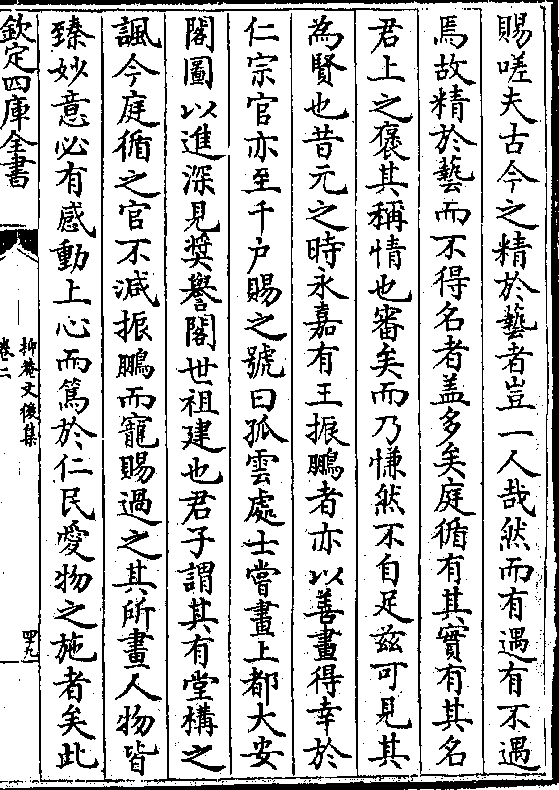 賜嗟夫古今之精於藝者豈一人哉然而有遇有不遇
焉故精於藝而不得名者盖多矣庭循有其實有其名
君上之褒其稱情也審矣而乃慊然不自足兹可見其
為賢也昔元之時永嘉有王振鵬者亦以善畫得幸於
仁宗官亦至千户賜之號曰孤雲處士嘗畫上都大安
閣圖以進深見奬譽閣世祖建也君子謂其有堂構之
諷今庭循之官不減振鵬而寵賜過之其所畫人物皆
臻妙意必有感動上心而篤於仁民愛物之施者矣此
欽定四庫全書
抑菴文後集
卷二
四九